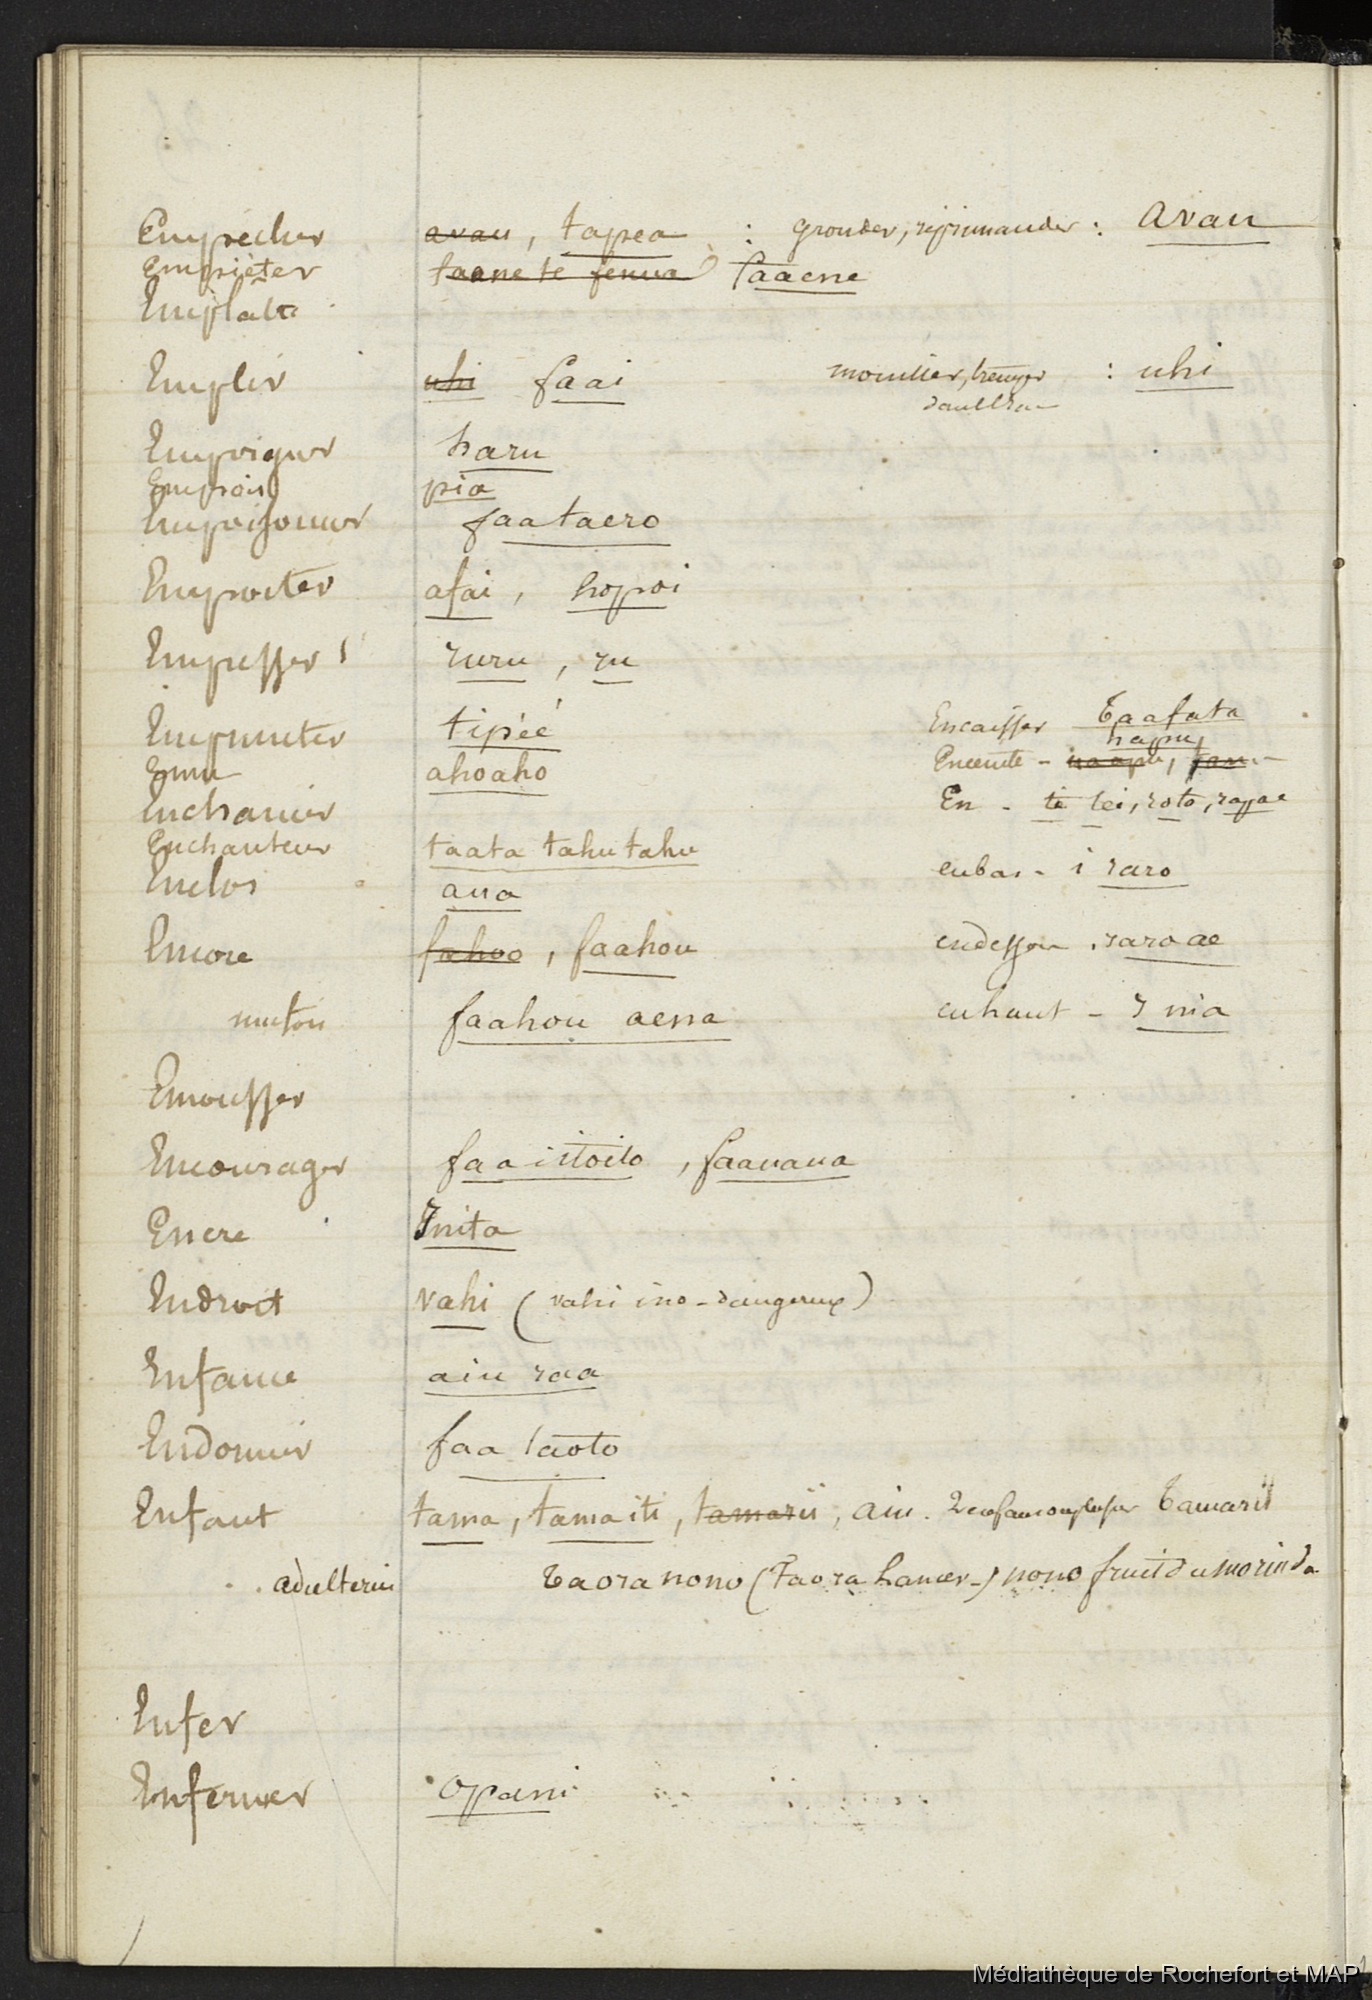 Empêcher avau, tapea : gronder, réprimander : Avau
Empièter taane te fenua faaene
Emplatr
Emplir uhi faai mouiller, tremper : uhi
dault
Empoigner haru
Empois pia
Empoisonner faataero
Emporter afai, hopoi
Empresser s' ruru, ru
Emprunter tipèè Encaisser Taafata
hapu
Emu ahoaho Enceinte - haapu, fan
Enchainer En - te tei, roto, rapae
Enchanteur taata tahutahu
Enclos aua enbas - i raro
Encore fahoo, faahou endessou, raro ae
faahou aena enhaut - I nia
Emousser
Encourager faaitoito, faauaua
Encre Inita
Endroit vahi (vahi ino - dangereux)
Enfance aiu raa
Endormir faa taoto
Enfant tama, tamaiti, tamarii, aiu. Tamarii
. . adulterin Taora nono (Taora lancer -) nono fruit du morinda
Enfer
Enfermer opani
Médiathèque de Rochefort et MAP